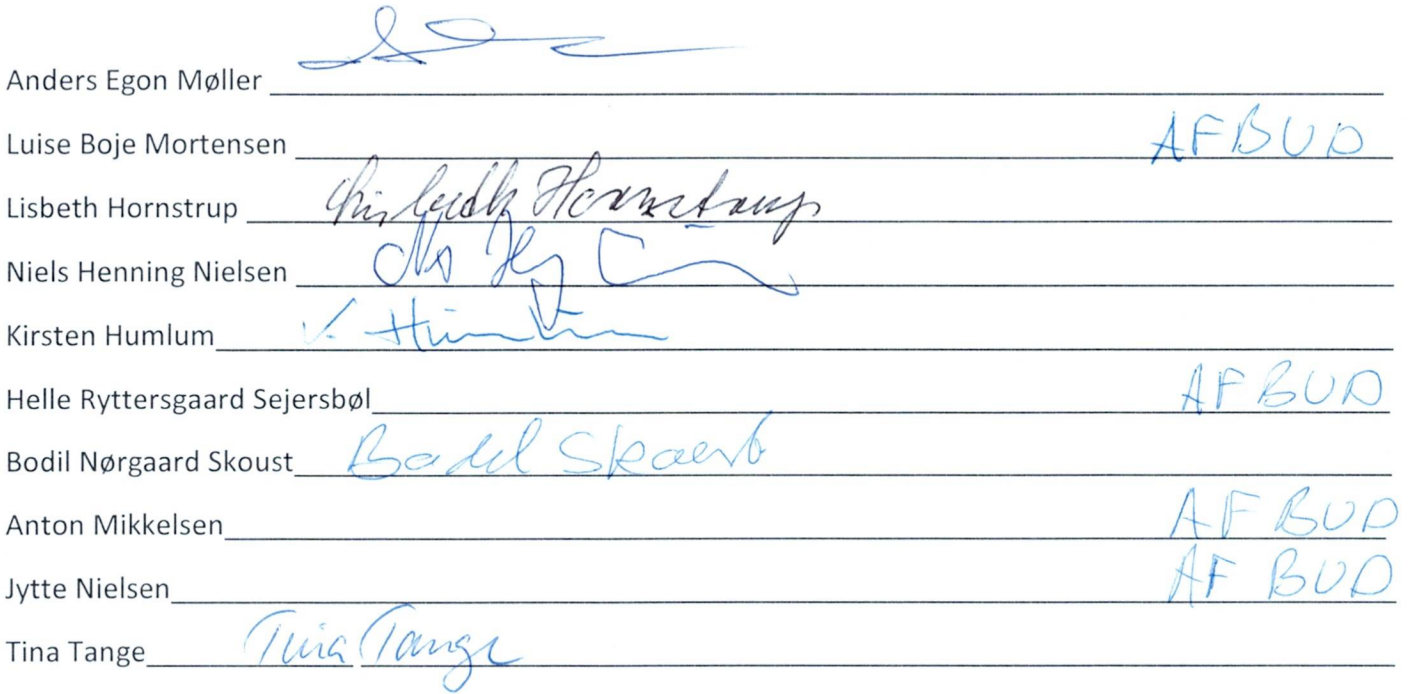 Anders Egon Møller
Luise Boje Mortensen AFBUD
Lisbeth Hornstrup Lisbeth Hornstrup
Niels Henning Nielsen
Kirsten Humlum K. Humlum
Helle Ryttersgaard Sejersbøl AFBUD
Bodil Nørgaard Skoust Bodil Skoust
Anton Mikkelsen AFBUD
Jytte Nielsen AF BUD
Tina Tange Tina Tange